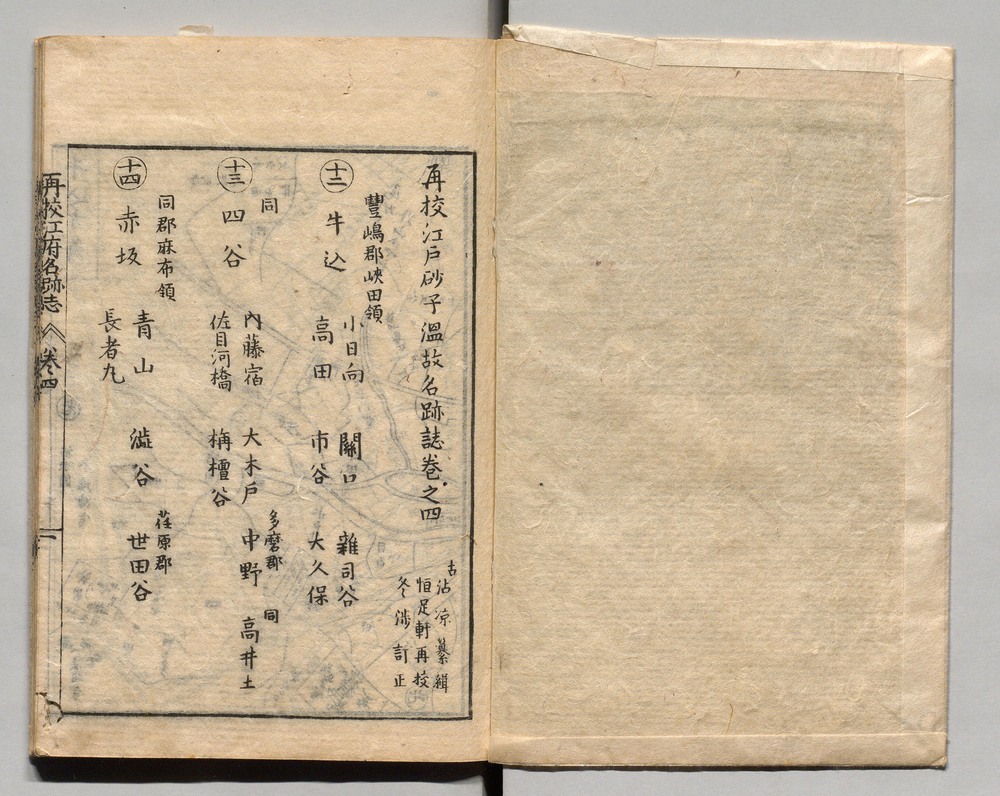 再挍江戸砂子溫故名跡誌卷之四
古
沾凉纂緝
恒足軒再挍
冬渉訂正
豐嶋郡峽田領
十二 牛込 小日向 關口 雜司谷
高田 市谷 大久保
同
十三 四谷 內藤宿 大木戸 多磨郡 中野 同 高井土
佐目河橋 栴檀谷
同郡麻布領
十四 赤坂 青山 澁谷 荏原郡 世田谷
長者丸
再挍江府名跡志 卷四
一